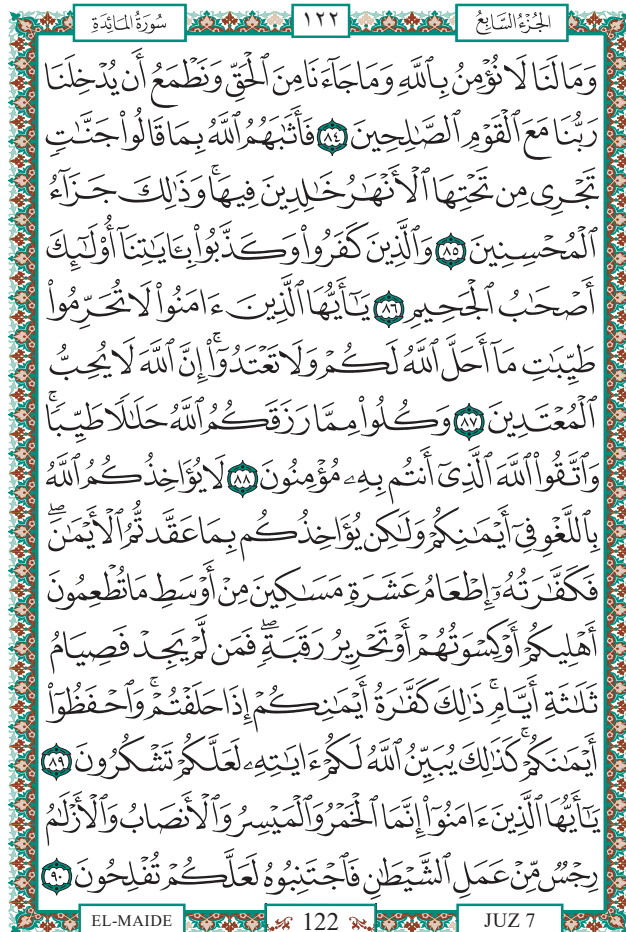 سُورَةُ المَائِدَةِ ١٢٢ الجُزْءُ السَّابِعُ
وَمَا لَنَا لَا نُؤْمِنُ بِٱللَّهِ وَمَا جَآءَنَا مِنَ ٱلْحَقِّ وَنَطْمَعُ أَن يُدْخِلَنَا
رَبُّنَا مَعَ ٱلْقَوْمِ ٱلصَّٰلِحِينَ ٨٤ فَأَثَٰبَهُمُ ٱللَّهُ بِمَا قَالُوا۟ جَنَّٰتٍ
تَجْرِى مِن تَحْتِهَا ٱلْأَنْهَٰرُ خَٰلِدِينَ فِيهَا ۚ وَذَٰلِكَ جَزَآءُ
ٱلْمُحْسِنِينَ ٨٥ وَٱلَّذِينَ كَفَرُوا۟ وَكَذَّبُوا۟ بِـَٔايَٰتِنَآ أُو۟لَٰٓئِكَ
أَصْحَٰبُ ٱلْجَحِيمِ ٨٦ يَٰٓأَيُّهَا ٱلَّذِينَ ءَامَنُوا۟ لَا تُحَرِّمُوا۟
طَيِّبَٰتِ مَآ أَحَلَّ ٱللَّهُ لَكُمْ وَلَا تَعْتَدُوٓا۟ ۚ إِنَّ ٱللَّهَ لَا يُحِبُّ
ٱلْمُعْتَدِينَ ٨٧ وَكُلُوا۟ مِمَّا رَزَقَكُمُ ٱللَّهُ حَلَٰلًا طَيِّبًا ۚ
وَٱتَّقُوا۟ ٱللَّهَ ٱلَّذِىٓ أَنتُم بِهِۦ مُؤْمِنُونَ ٨٨ لَا يُؤَاخِذُكُمُ ٱللَّهُ
بِٱللَّغْوِ فِىٓ أَيْمَٰنِكُمْ وَلَٰكِن يُؤَاخِذُكُم بِمَا عَقَّدتُّمُ ٱلْأَيْمَٰنَ ۖ
فَكَفَّٰرَتُهُۥٓ إِطْعَامُ عَشَرَةِ مَسَٰكِينَ مِنْ أَوْسَطِ مَا تُطْعِمُونَ
أَهْلِيكُمْ أَوْ كِسْوَتُهُمْ أَوْ تَحْرِيرُ رَقَبَةٍ ۖ فَمَن لَّمْ يَجِدْ فَصِيَامُ
ثَلَٰثَةِ أَيَّامٍ ۚ ذَٰلِكَ كَفَّٰرَةُ أَيْمَٰنِكُمْ إِذَا حَلَفْتُمْ ۚ وَٱحْفَظُوٓا۟
أَيْمَٰنَكُمْ ۚ كَذَٰلِكَ يُبَيِّنُ ٱللَّهُ لَكُمْ ءَايَٰتِهِۦ لَعَلَّكُمْ تَشْكُرُونَ ٨٩
يَٰٓأَيُّهَا ٱلَّذِينَ ءَامَنُوٓا۟ إِنَّمَا ٱلْخَمْرُ وَٱلْمَيْسِرُ وَٱلْأَنصَابُ وَٱلْأَزْلَٰمُ
رِجْسٌ مِّنْ عَمَلِ ٱلشَّيْطَٰنِ فَٱجْتَنِبُوهُ لَعَلَّكُمْ تُفْلِحُونَ ٩٠
EL-MAIDE 122 JUZ 7